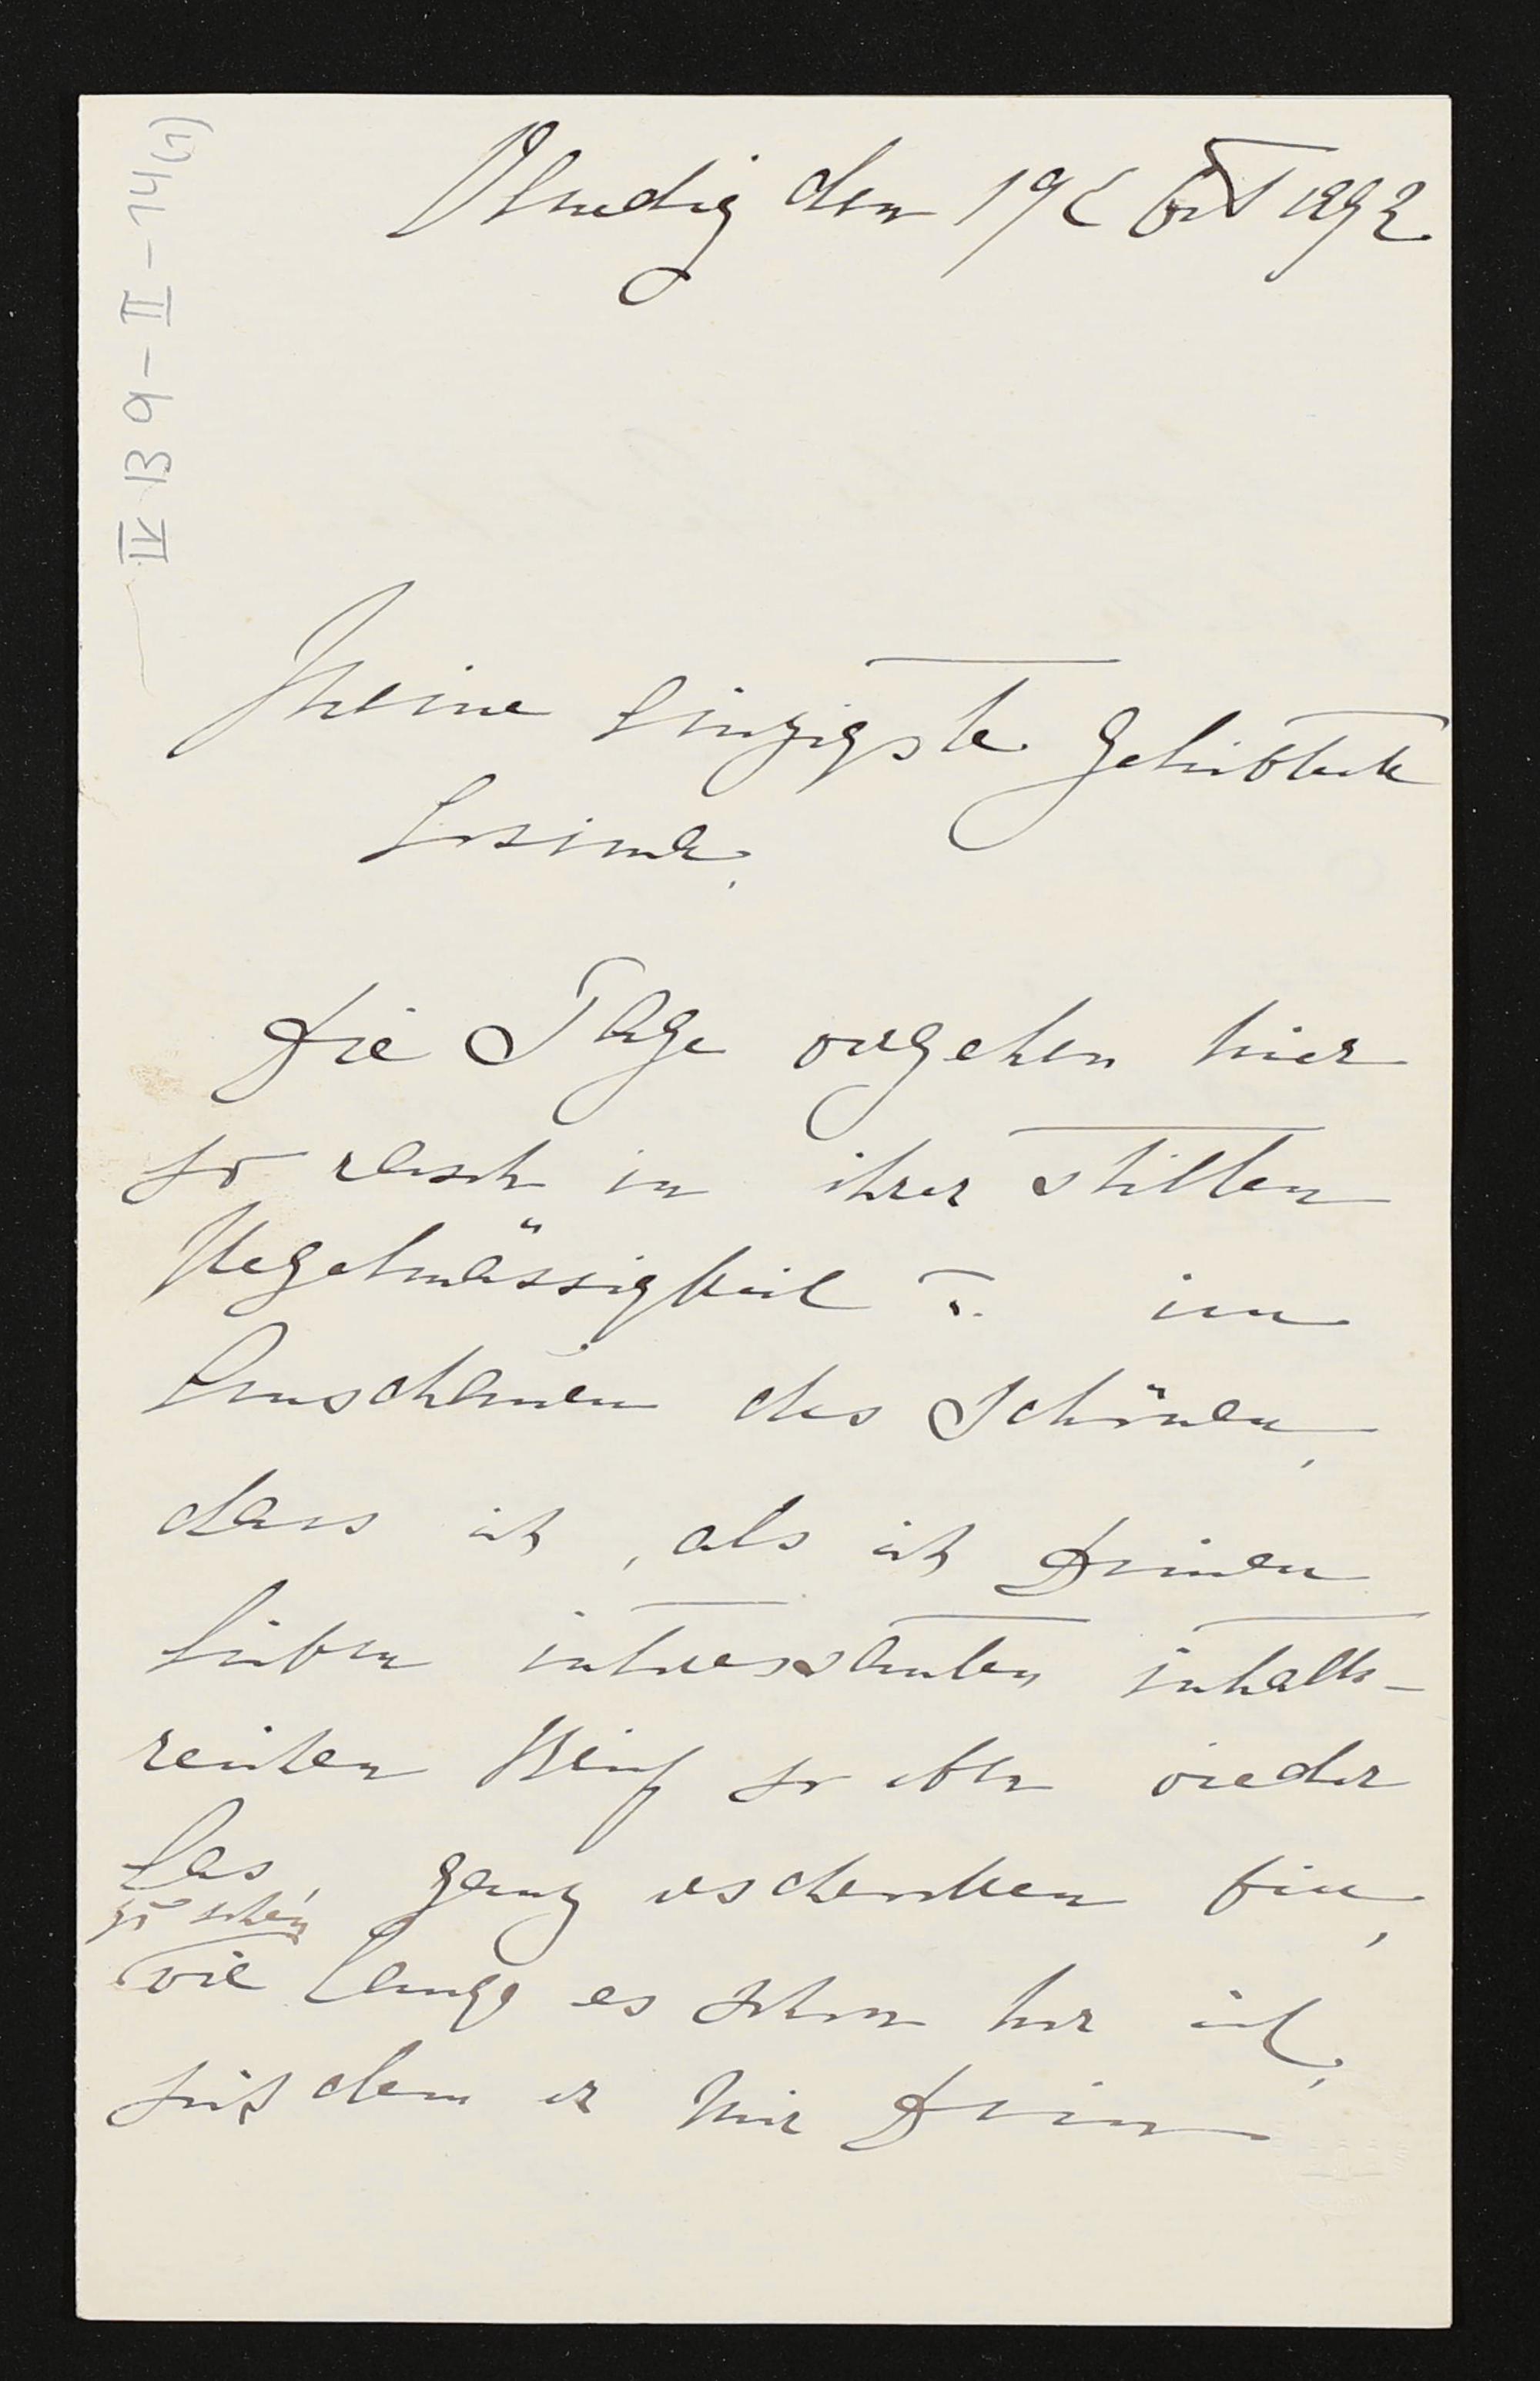 IV B 9-II-14(1)
Venedig den 19t Oct 1892
Meine Einzigste Geliebteste
Cosima,
Die Tage vergehen hier
so rasch in ihrer stillen
Regelmässigkeit u. im
Anschauen des Schönen,
dass ich, als ich Deinen
lieben interessanten inhalts-
reichen Brief so eben wieder
las, ganz erschrocken bin,
zu sehen
wie lange es schon her ist,
seitdem er mir Dein